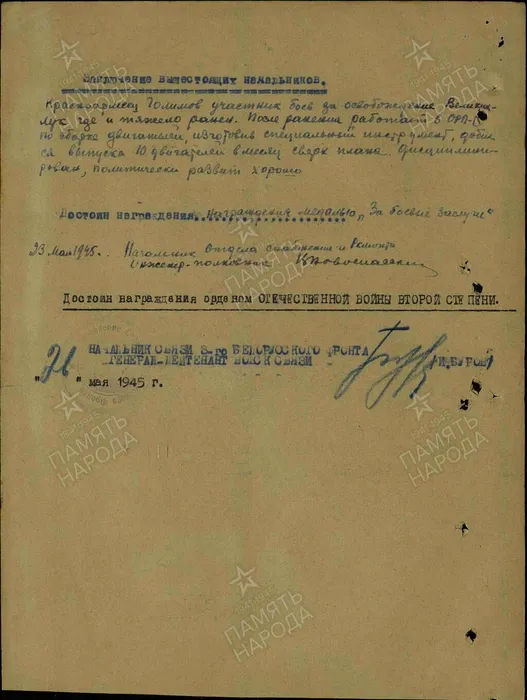 Заключение вышестоящих начальников.
Красноармеец Голиков участник боев за освобождение Великих
Лук где и тяжело ранен. После ранения работает в
по сборке двигателей, изготовив специальный инструмент, добил
ся выпуска 10 двигателей в месяц сверх плана. Дисциплини-
рован, политически развит хорошо
Достоин награждения награждения медалью "За боевые заслуги"
23 мая 1945г. Начальник Отдела снабжения и Ремонта
Инженер-полковник
Достоин награждения орденом ОТЕЧЕСТВЕННОЙ ВОЙНЫ ВТОРОЙ СТЕПЕНИ.
НАЧАЛЬНИК СВЯЗИ 3-го БЕЛОРУССКОГО ФРОНТА
ГЕНЕРАЛ-ЛЕЙТЕНАНТ ВОЙСК СВЯЗИ /БУРОВ/
"26" мая 1945 г.
ПАМЯТЬ НАРОДА